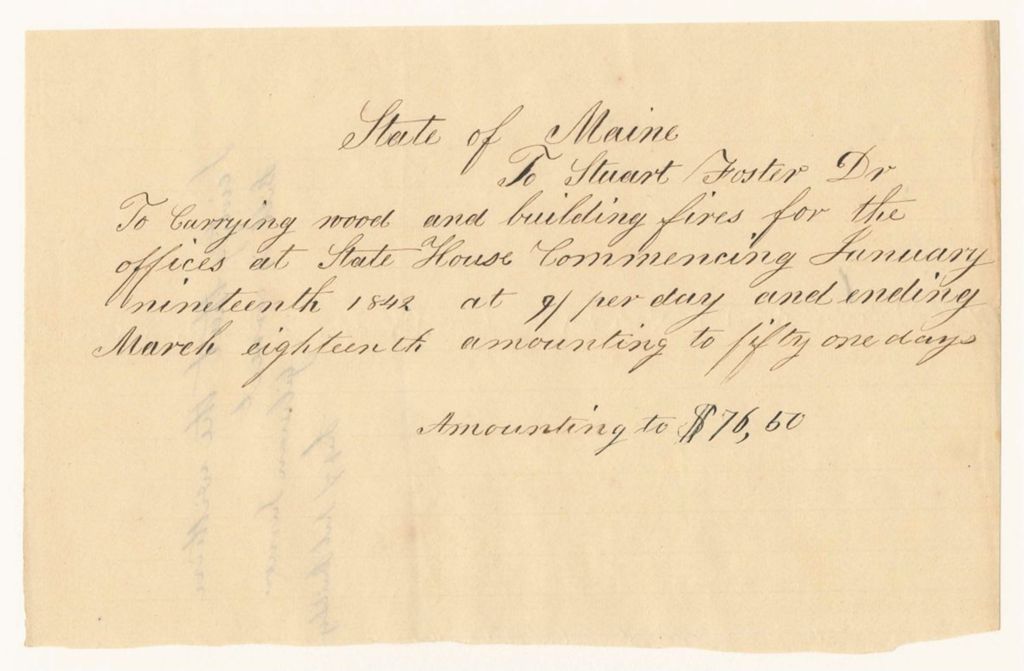 State of Maine
To Stuart Foster Dr
To Carrying wood and building fires for the
offices at State House Commencing January
nineteenth 1842 at 9/ per day and ending
March eighteenth amounting to fifty one days
Amounting to $76,50